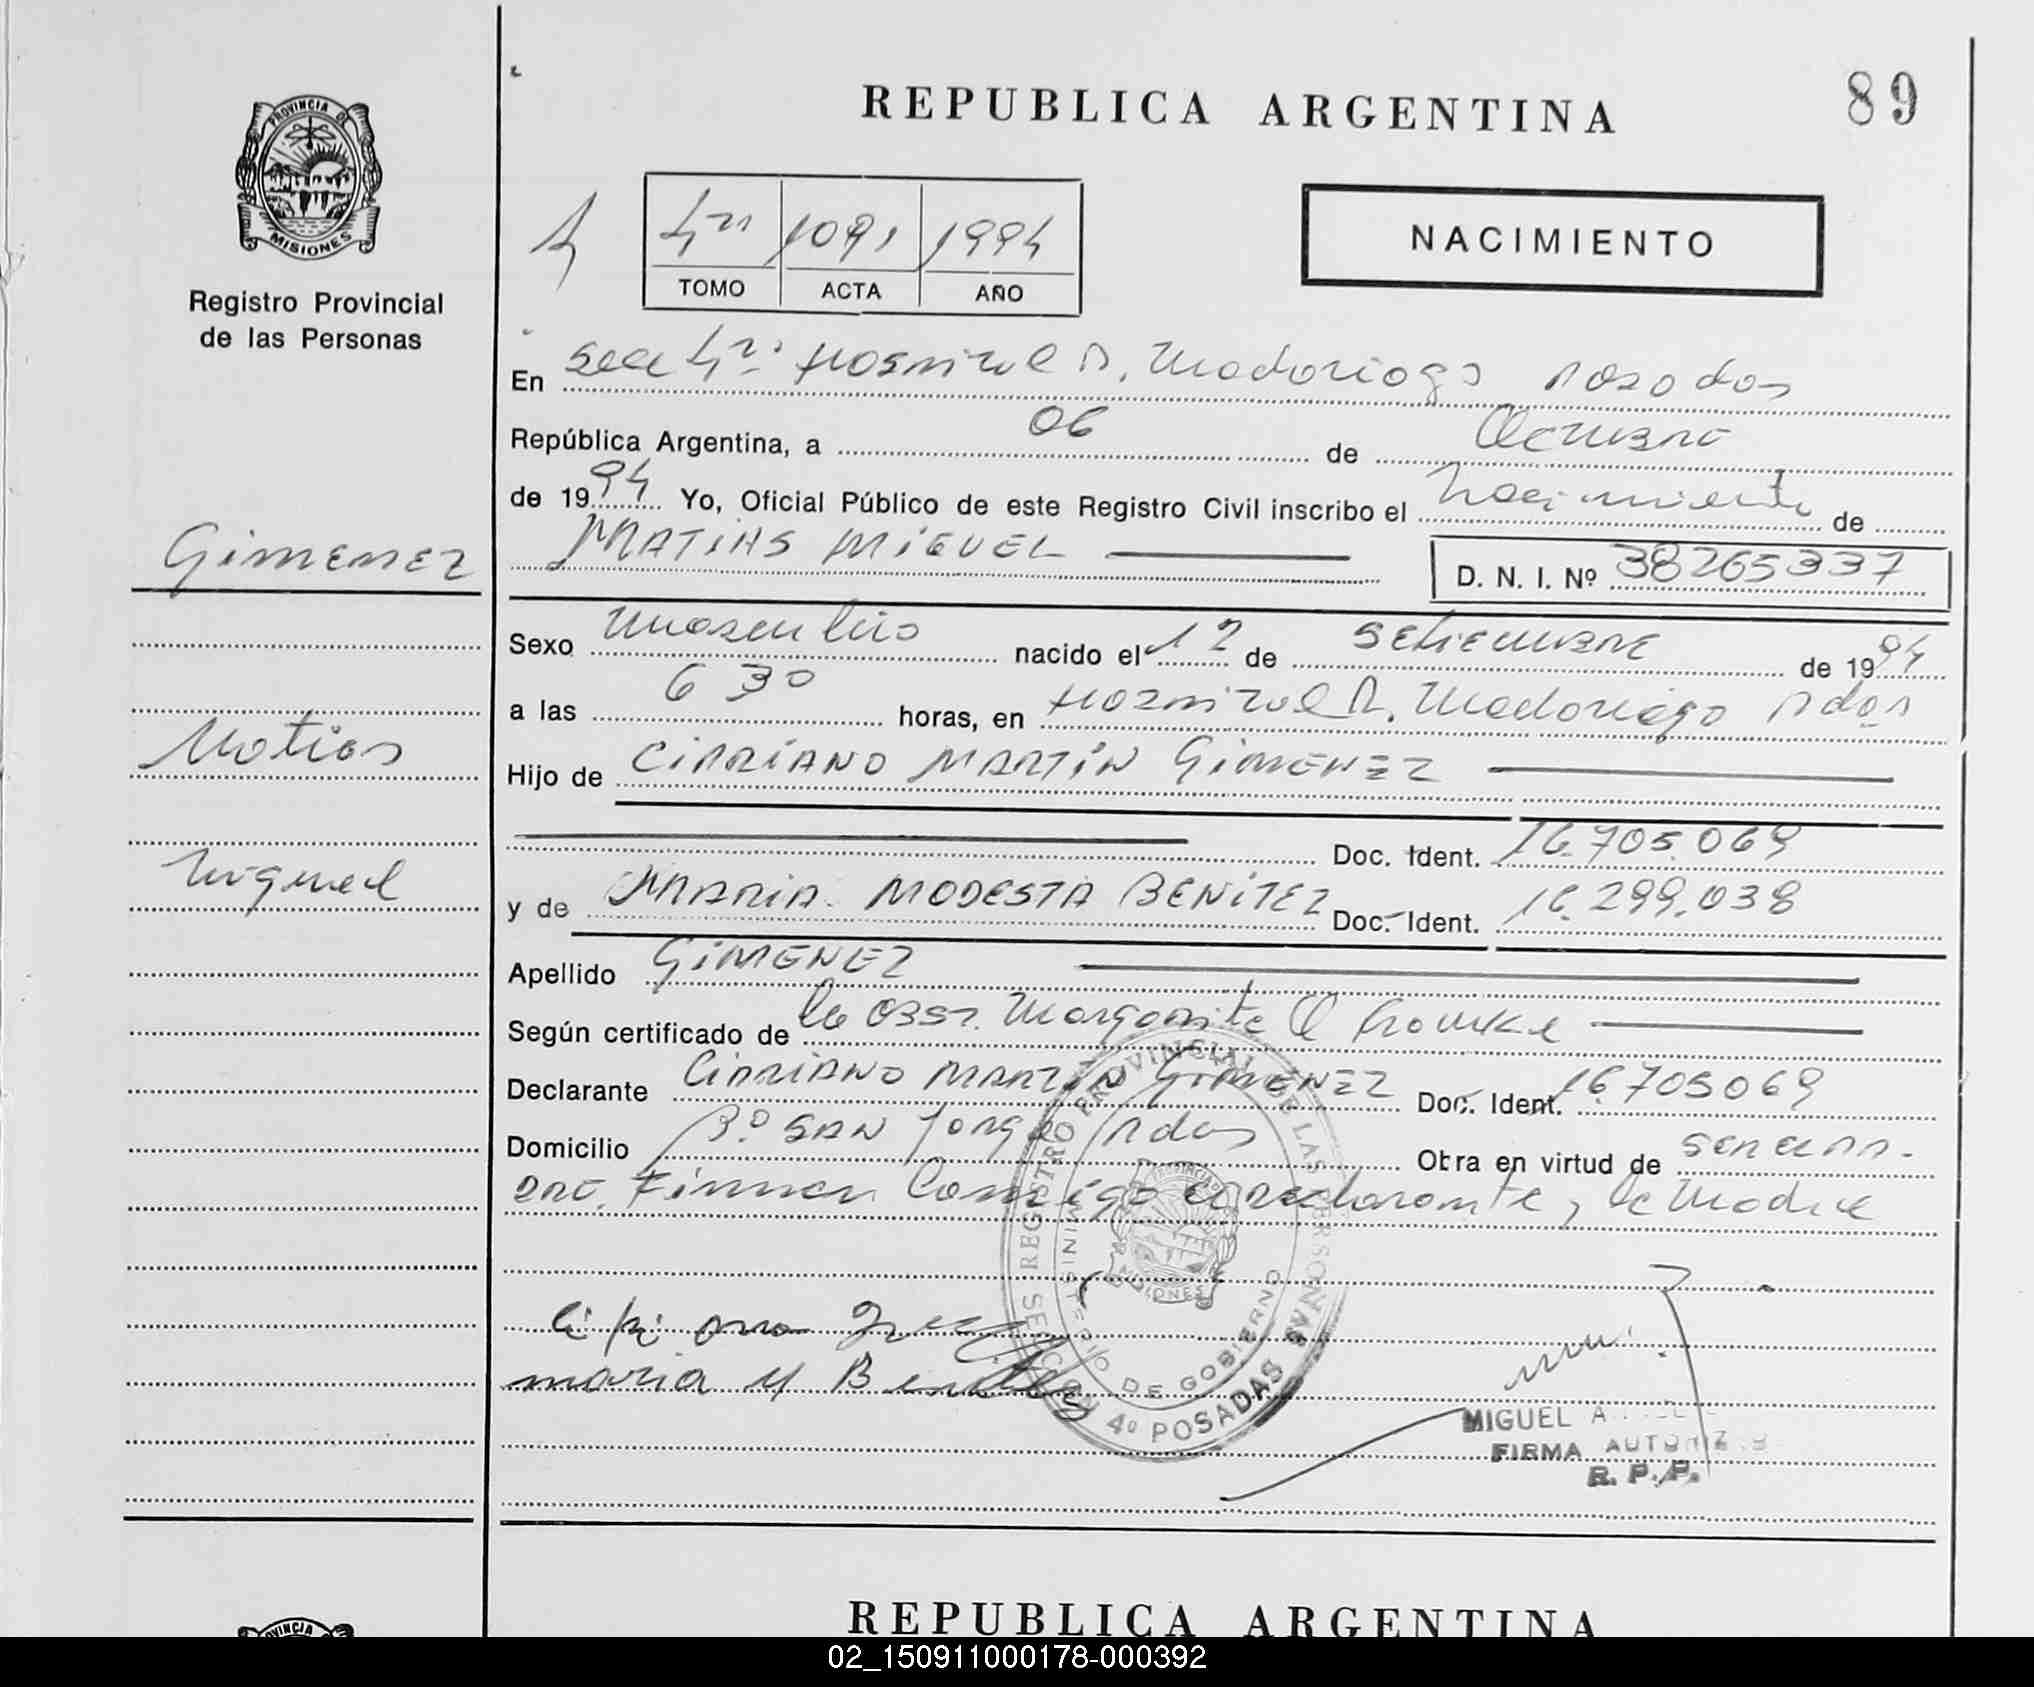 REPUBLICA ARGENTINA
89
PROVINCIA DE
MISIONES
Registro Provincial
de las Personas
4
4ta 1091 1994
TOMO ACTA AÑO
NACIMIENTO
En Secc 4ta Hospital R. Madariaga Posadas
República Argentina, a 06 de Octubre
de 1994 Yo, Oficial Público de este Registro Civil inscribo el Nacimiento de
MATIAS MIGUEL
D. N. I. Nº 38265337
Gimenez
Matias
Miguel
Sexo Masculino nacido el 12 de Setiembre de 1994
a las 6 30 horas, en Hospital R. Madariaga Pdas
Hijo de CIPRIANO MARTIN GIMENEZ
Doc. Ident. 16.705.069
y de MARIA MODESTA BENITEZ Doc. Ident. 16.299.038
Apellido GIMENEZ
Según certificado de la Obst. Margarita
Declarante CIPRIANO MARTIN GIMENEZ Doc. Ident. 16705069
Domicilio Bº SAN Jorge Pdas Obra en virtud de
Firman Conmigo el declarante, la Madre
REGISTRO PROVINCIAL DE LAS PERSONAS
MINISTERIO DE GOBIERNO
MISIONES
SECCION 4º POSADAS
Cipriano
maria M Benitez
MIGUEL A
FIRMA AUTORIZ
R. P. P.
REPUBLICA ARGENTINA
02_150911000178-000392